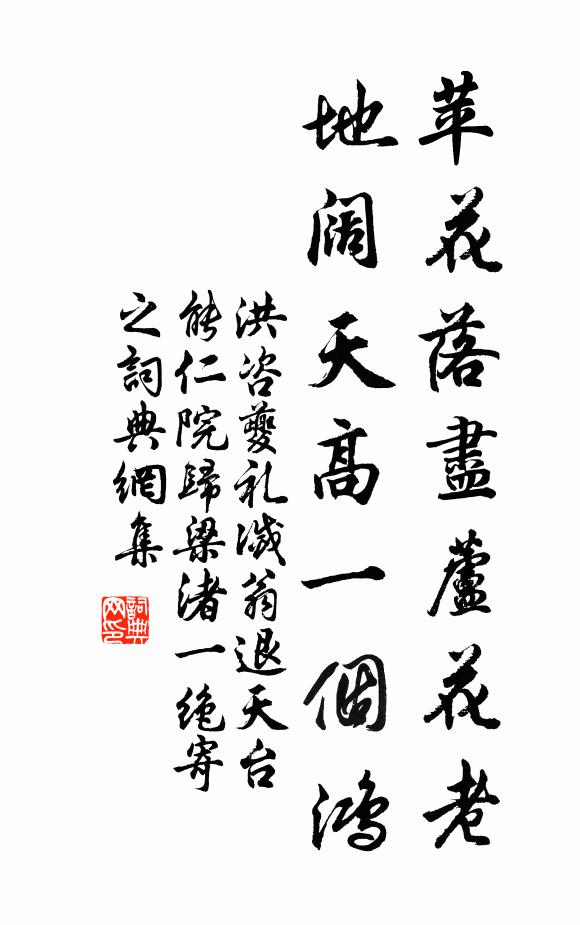 苹花落盡蘆花老
地闊天高一個鴻
洪咨夔礼滅翁退天台
能仁院歸梁渚一絕寄
之詞典網集
詞典
网印